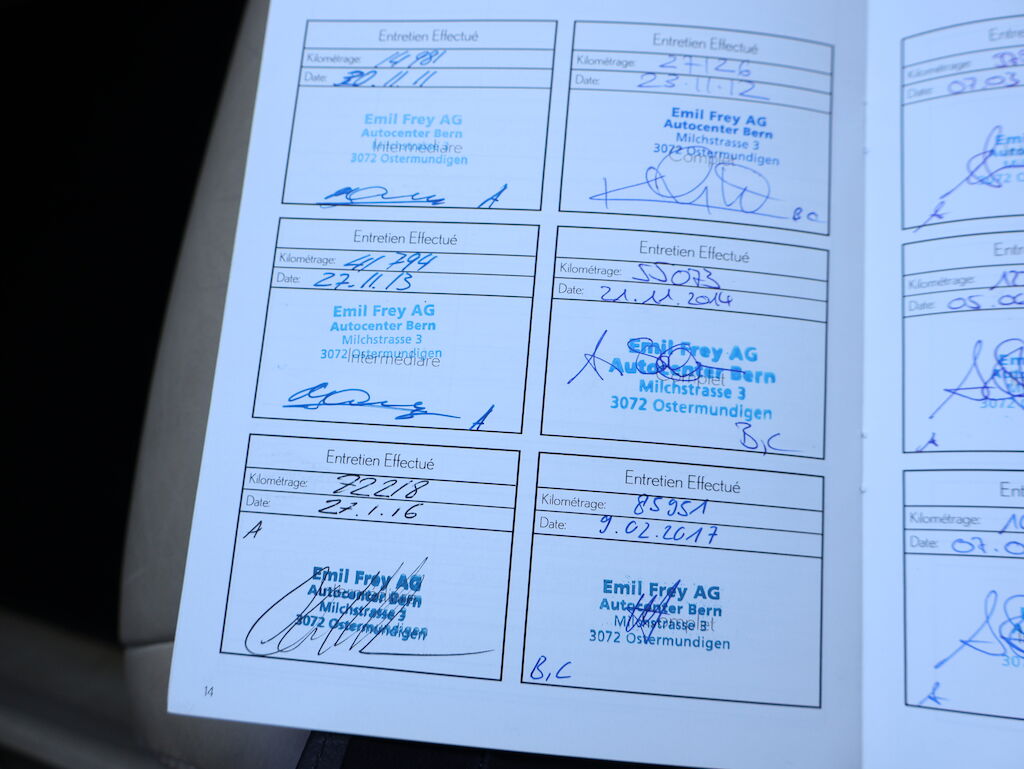 Entretien Effectué
Kilométrage: 14981
Date: 30.11.11
Emil Frey AG
Autocenter Bern
Milchstrasse 3
Intermédiaire
3072 Ostermundigen
A
Entretien Effectué
Kilométrage: 27126
Date: 23.11.12
Emil Frey AG
Autocenter Bern
Milchstrasse 3
3072 Ostermundigen
Complet
B C
Entretien Effectué
Kilométrage: 41794
Date: 27.11.13
Emil Frey AG
Autocenter Bern
Milchstrasse 3
3072 Ostermundigen
Intermédiaire
A
Entretien Effectué
Kilométrage: 55073
Date: 21.11.2014
Emil Frey AG
Autocenter Bern
Complet
Milchstrasse 3
3072 Ostermundigen
B,C
Entretien Effectué
Kilométrage: 72218
Date: 27.1.16
A
Emil Frey AG
Autocenter Bern
Milchstrasse 3
3072 Ostermundigen
Entretien Effectué
Kilométrage: 85951
Date: 9.02.2017
Emil Frey AG
Autocenter Bern
Milchstrasse 3
Complet
3072 Ostermundigen
B,C
14
Kilométrage:
Date: 07.03
A
Kilométrage:
Date: 05.0
A
Kilométrage: 
Date: 07.0
A